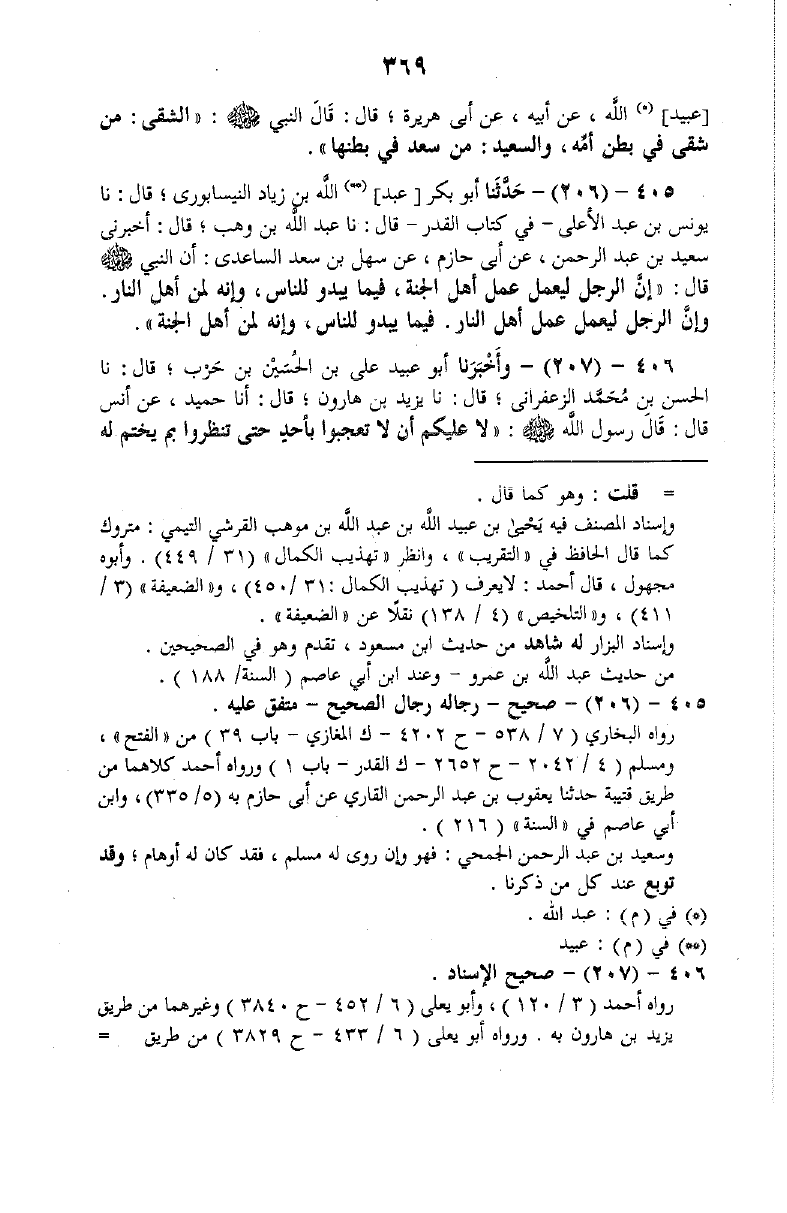 ٣٦٩
[عبيد] (*) اللَّه ، عن أبيه ، عن أبى هريرة ؛ قال : قَالَ النبي ﷺ : « الشقى : من
شقى في بطن أمِّه ، والسعيد : من سعد في بطنها » .
٤٠٥ – (٢٠٦) – حَدَّثَنا أبو بكر [ عبد] (**) اللَّه بن زياد النيسابورى ؛ قال : نا
يونس بن عبد الأعلى – في كتاب القدر – قال : نا عبد اللَّه بن وهب ؛ قال : أخبرنى
سعيد بن عبد الرحمن ، عن أبى حازم ، عن سهل بن سعد الساعدى : أن النبي ﷺ
قال : « إنَّ الرجل ليعمل عمل أهل الجنة ، فيما يبدو للناس ، وإنه لمن أهل النار .
وإنَّ الرجل ليعمل عمل أهل النار . فيما يبدو للناس ، وإنه لمن أهل الجنة » .
٤٠٦ – (٢٠٧) – وأَخْبَرَنا أبو عبيد على بن الحُسَيْن بن حَرْب ؛ قال : نا
الحسن بن مُحَمَّد الزعفرانى ؛ قال : نا يزيد بن هارون ؛ قال : أنا حميد ، عن أنس
قال : قَالَ رسول اللَّه ﷺ : « لا عليكم أن لا تعجبوا بأحدٍ حتى تنظروا بم يختم له
= قلت : وهو كما قال .
وإسناد المصنف فيه يَحْيىٰ بن عبيد اللَّه بن عبد اللَّه بن موهب القرشي التيمي : متروك
كما قال الحافظ في « التقريب » ، وانظر « تهذيب الكمال » (٣١ / ٤٤٩) . وأبوه
مجهول ، قال أحمد : لايعرف ( تهذيب الكمال :٣١ /٤٥٠) ، و« الضعيفة » (٣ /
٤١١) ، و« التلخيص » (٤ / ١٣٨) نقلًا عن « الضعيفة » .
وإسناد البزار له شاهد من حديث ابن مسعود ، تقدم وهو في الصحيحين .
من حديث عبد اللَّه بن عمرو – وعند ابن أبي عاصم ( السنة/ ١٨٨ ) .
٤٠٥ – (٢٠٦) – صحيح – رجاله رجال الصحيح – متفق عليه .
رواه البخاري ( ٧ / ٥٣٨ – ح ٤٢٠٢ – ك المغازي – باب ٣٩ ) من « الفتح » ،
ومسلم ( ٤ / ٢٠٤٢ – ح ٢٦٥٢ – ك القدر – باب ١ ) ورواه أحمد كلاهما من
طريق قتيبة حدثنا يعقوب بن عبد الرحمن القاري عن أبى حازم به (٥/ ٣٣٥) ، وابن
أبي عاصم في « السنة » ( ٢١٦ ) .
وسعيد بن عبد الرحمن الجمحي : فهو وإن روى له مسلم ، فقد كان له أوهام ؛ وقد
توبع عند كل من ذكرنا .
(*) في (م) : عبد الله .
(**) في (م) : عبيد
٤٠٦ – (٢٠٧) – صحيح الإسناد .
رواه أحمد ( ٣ / ١٢٠ ) ، وأبو يعلى ( ٦ / ٤٥٢ – ح ٣٨٤٠ ) وغيرهما من طريق
يزيد بن هارون به . ورواه أبو يعلى ( ٦ / ٤٣٣ – ح ٣٨٢٩ ) من طريق =